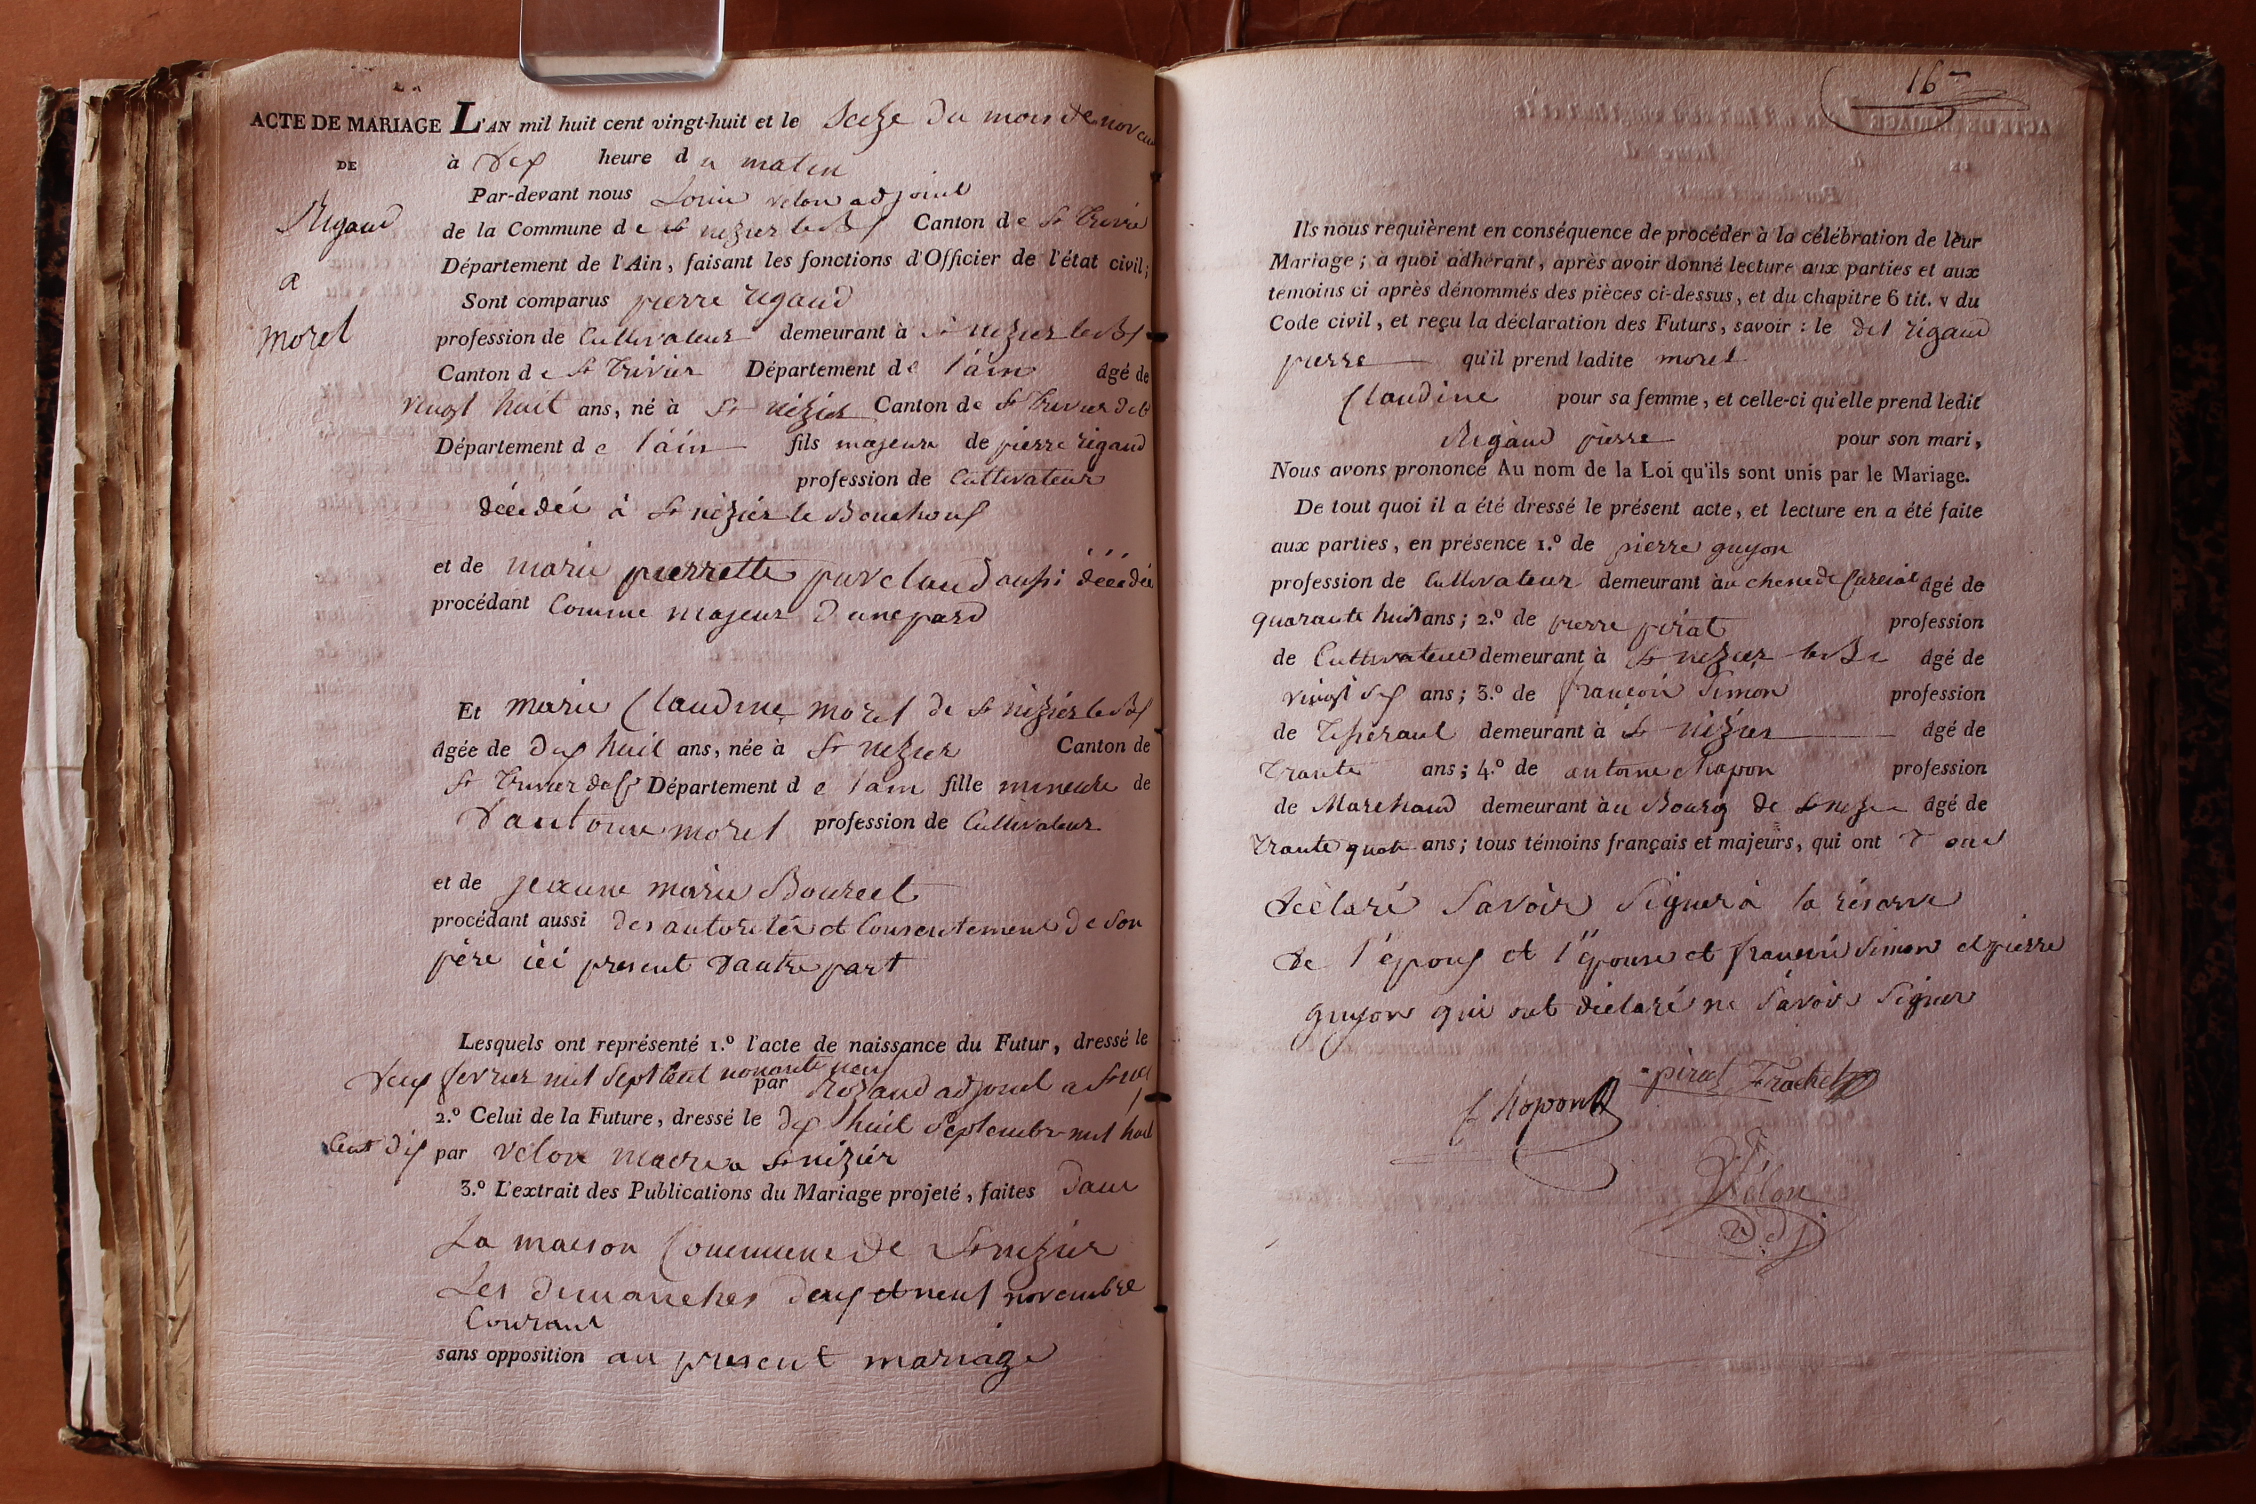 ACTE DE MARIAGE L'AN mil huit cent vingt-huit et le Seize du mois de novem
DE
à dix heure du matin
Par-devant nous Louis velon adjoint
Rigaud
de la Commune de St nizier le Bx Canton de St Trivier
Département de l'Ain, faisant les fonctions d'Officier de l'état civil;
a
Sont comparus pierre rigaud
morel
profession de Cultivateur demeurant à St nizier le Bx
Canton de St Trivier Département de l'ain âgé de
vingt huit ans, né à St nizier Canton de St Trivier
Département de l'ain fils majeur de pierre rigaud
profession de Cultivateur
décédé à St nizier le Bouchoux
et de marie pierrette purclaud aussi décédée
procédant Comme majeur d'une pard
Et marie Claudine morel de St nizier le Bx
âgée de dix huit ans, née à St nizier Canton de
St Trivier Département de l'ain fille mineure de
d'antoine morel profession de Cultivateur
et de jeanne marie Bourcet
procédant aussi des autoritér et Consentement de son
père ici present d'autre part
Lesquels ont représenté 1.º l'acte de naissance du Futur, dressé le
deux fevrier mil sept cent nonante neuf
par Rozand adjoint a St
2.º Celui de la Future, dressé le dix huit Septembre mil huit
Cent dix par velon maire a St nizier
3.º L'extrait des Publications du Mariage projeté, faites dans
La maison Commune de St nizier
Les dimanches deux et neuf novembre
Courant
sans opposition au present mariage
16
Ils nous requièrent en conséquence de procéder à la célébration de leur
Mariage; a quoi adhérant, après avoir donné lecture aux parties et aux
témoins ci après dénommés des pièces ci-dessus, et du chapitre 6 tit. v du
Code civil, et reçu la déclaration des Futurs, savoir: le dit rigaud
pierre qu'il prend ladite morel
Claudine pour sa femme, et celle-ci qu'elle prend ledit
Rigaud pierre pour son mari,
Nous avons prononcé Au nom de la Loi qu'ils sont unis par le Mariage.
De tout quoi il a été dressé le présent acte, et lecture en a été faite
aux parties, en présence 1.º de pierre guyon
profession de Cultivateur demeurant au chene de Curciat âgé de
quarante huit ans; 2.º de pierre pirat profession
de Cultivateur demeurant à St nizier le B âgé de
vingt six ans; 3.º de françois Simon profession
de Tisseraut demeurant à St nizier âgé de
Trante ans; 4.º de antoine chapon profession
de Marchand demeurant àu Bourg de St nizier âgé de
Trante quatr ans; tous témoins français et majeurs, qui ont
déclaré Savoir Signer à la réserve
de l'époux et l'épouse et francois Simon et pierre
guyon qui ont déclaré ne Savoir Signer
pirat Frachet
Chapon
Vélon
adj